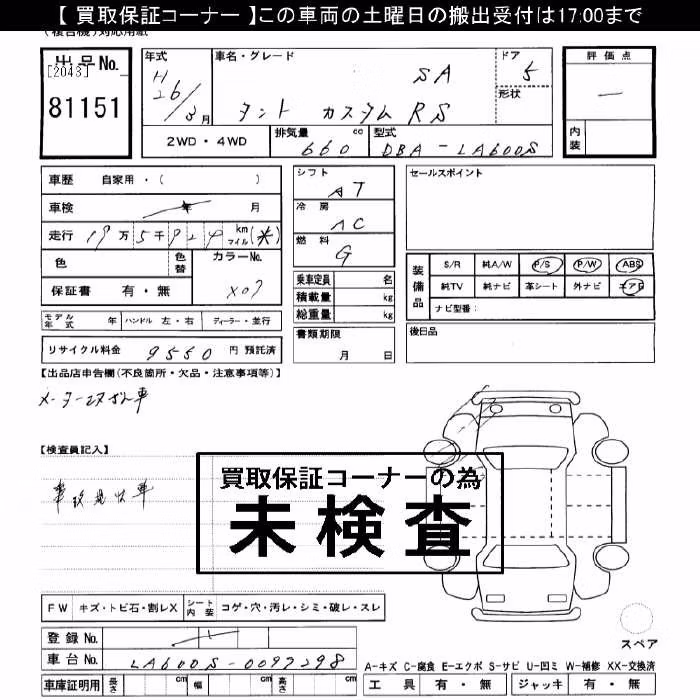 【 買取保証コーナー 】この車両の土曜日の搬出受付は17:00まで
出品No.
[2043]
81151
年式
H26/3月
車名・グレード
SA
タント カスタム RS
ドア
5
形状
評価点
—
内装
2WD・4WD
排気量
660
cc
型式
DBA-LA600S
車歴 自家用・( )
車検 年 月
走行 19万5千924 km マイル (*)
色
色替
カラーNo.
X07
保証書 有・無
モデル年式 年 ハンドル 左・右 ディーラー・並行
リサイクル料金 9550 円 預託済
シフト
AT
冷房
AC
燃料
G
乗車定員 名
積載量 kg
総重量 kg
書類期限
月 日
セールスポイント
装備品
S/R 純A/W P/S P/W ABS
純TV 純ナビ 革シート 外ナビ エアB
ナビ型番:
後日品
【出品店申告欄(不良箇所・欠品・注意事項等)】
【検査員記入】
買取保証コーナーの為
未検査
FW キズ・トビ石・割レX シート内装 コゲ・穴・汚レ・シミ・破レ・スレ
登録No.
車台No. LA600S-0097298
車庫証明用 長さ cm 幅 cm 高さ cm
スペア
A-キズ C-腐食 E-エクボ S-サビ U-凹ミ W-補修 XX-交換済
工具 有・無 ジャッキ 有・無